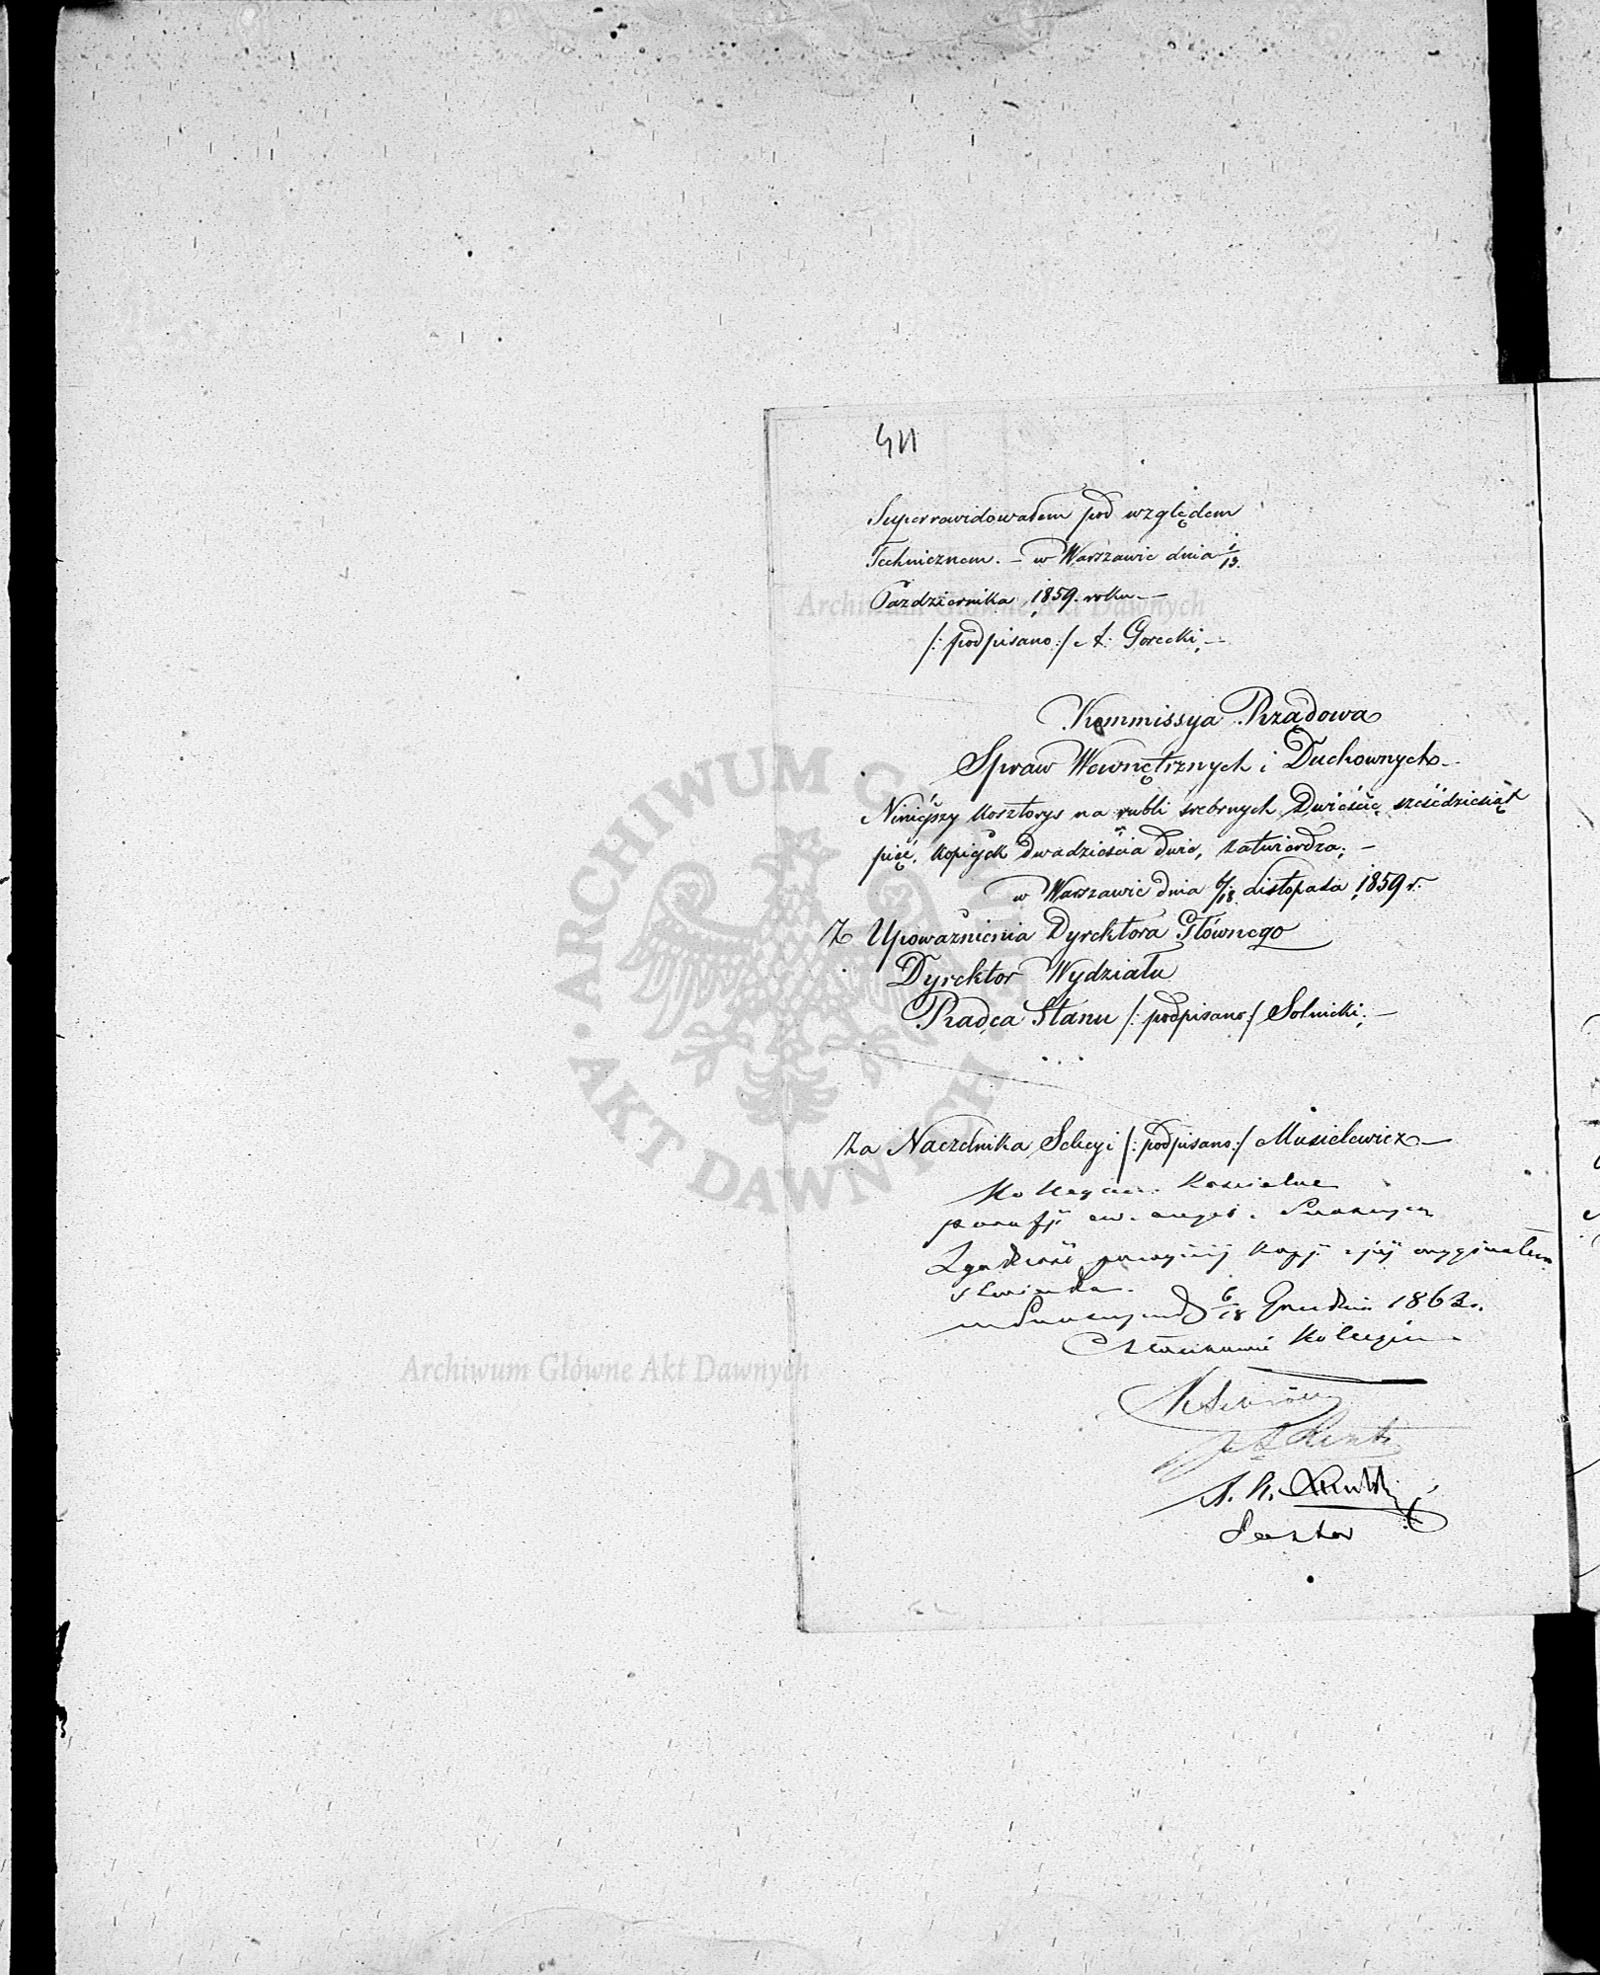 411
Superrewidowałem pod względem
Technicznem. – w Warszawie dnia 1/13.
Października 1859. roku. –
/: podpisano :/ A. Gorecki, –
Kommissya Rządowa
Spraw Wewnętrznych i Duchownych. –
Niniejszy kosztorys na rubli srebrnych Dwieście sześćdziesiąt
pięć, kopiejek dwadzieścia dwie, zatwierdza; –
w Warszawie dnia 6/18. Listopada 1859 r.
Z Upoważnienia Dyrektora Głównego
Dyrektor Wydziału
Radca Stanu /: podpisano :/ Solnicki; –
Za Naczelnika Sekcyi /: podpisano :/ Musielewicz –
Kollegium Kościelne
parafji ew. augs.
Zgodność powyższej kopji z jej oryginałem
stwierdza.
6/18 Grudnia 1862.
Członkowie Kollegium
Pastor
ARCHIWUM GŁÓWNE AKT DAWNYCH
Archiwum Główne Akt Dawnych
Archiwum Główne Akt Dawnych